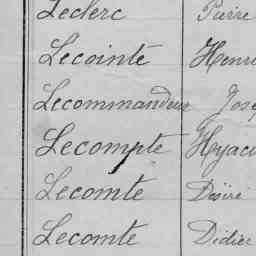 Leclerc Pierre
Lecointe Henri
Lecommandeur Jose
Lecompte Hyaci
Lecomte Désiré
Lecomte Didier